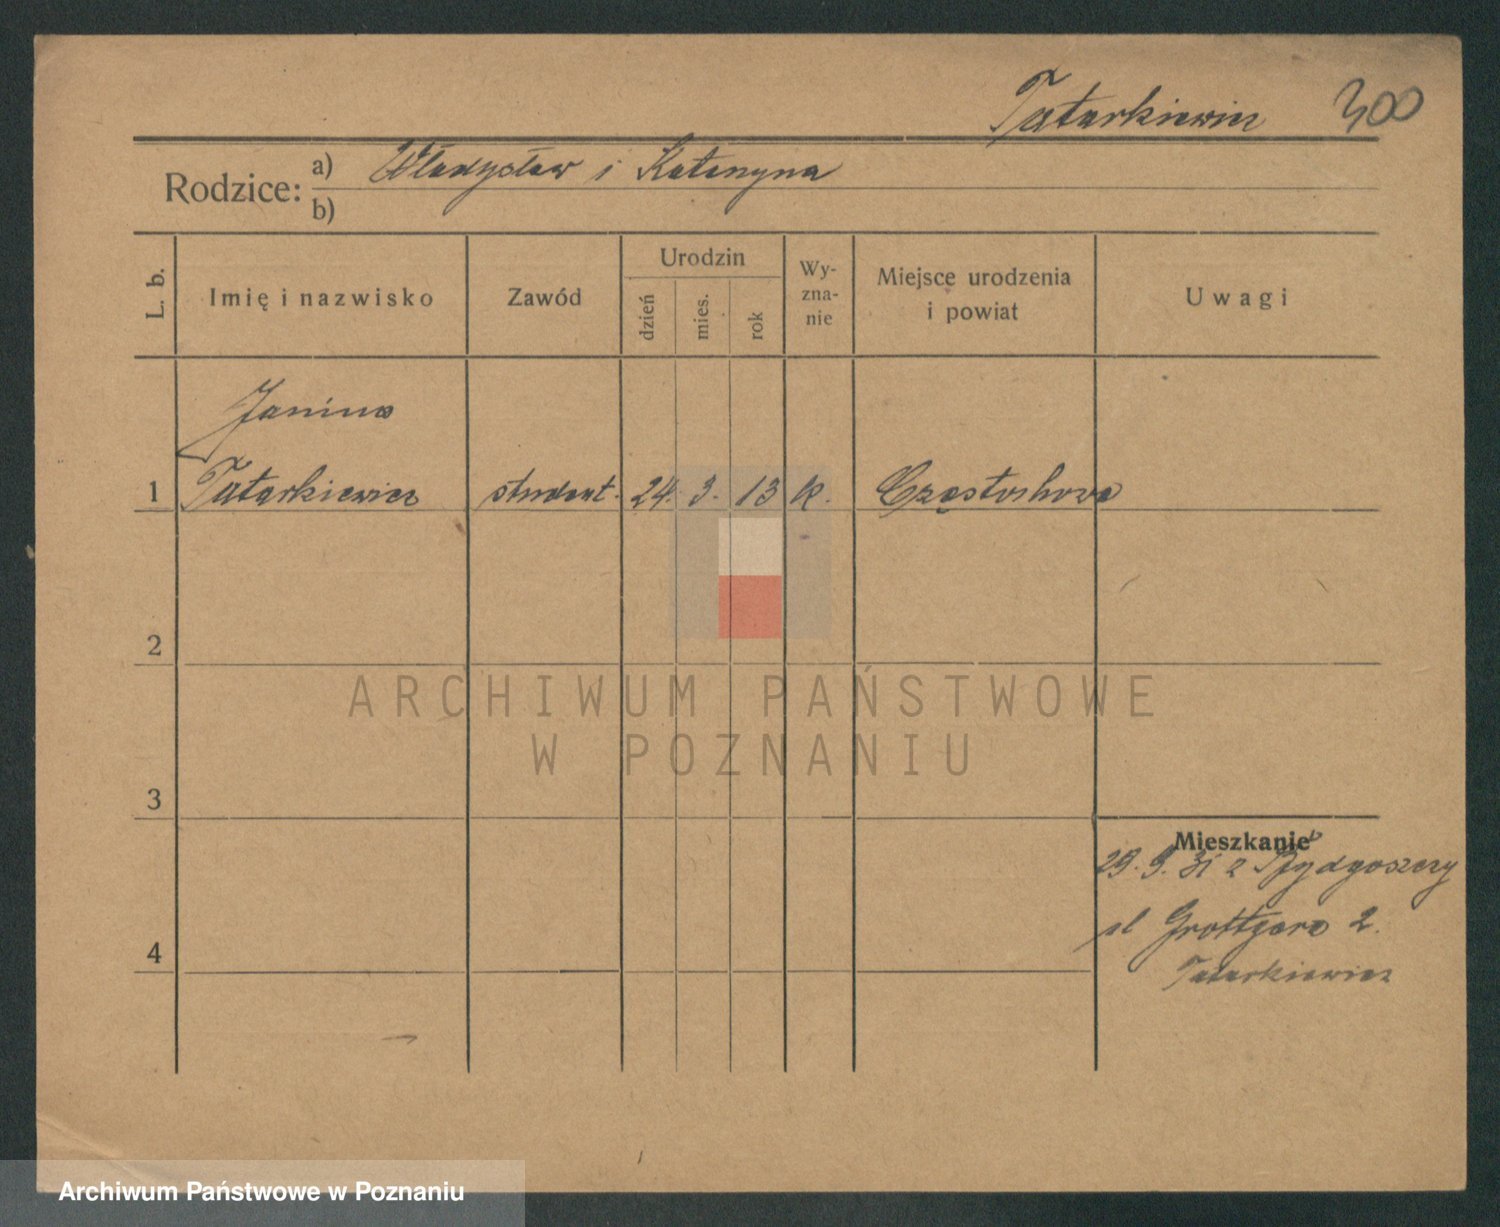 Tatarkiewicz 300
Rodzice: a) Władysław i Katarzyna
b)
L. b. Imię i nazwisko Zawód Urodzin dzień mies. rok Wy-zna-nie Miejsce urodzenia i powiat Uwagi
Janina
1 Tatarkiewicz student. 24. 3. 13 k. Częstochowa
2
ARCHIWUM PAŃSTWOWE
W POZNANIU
3
Mieszkanie
29. 9. 31 z Bydgoszczy
ul Grottgera 2.
4
Tatarkiewicz
Archiwum Państwowe w Poznaniu